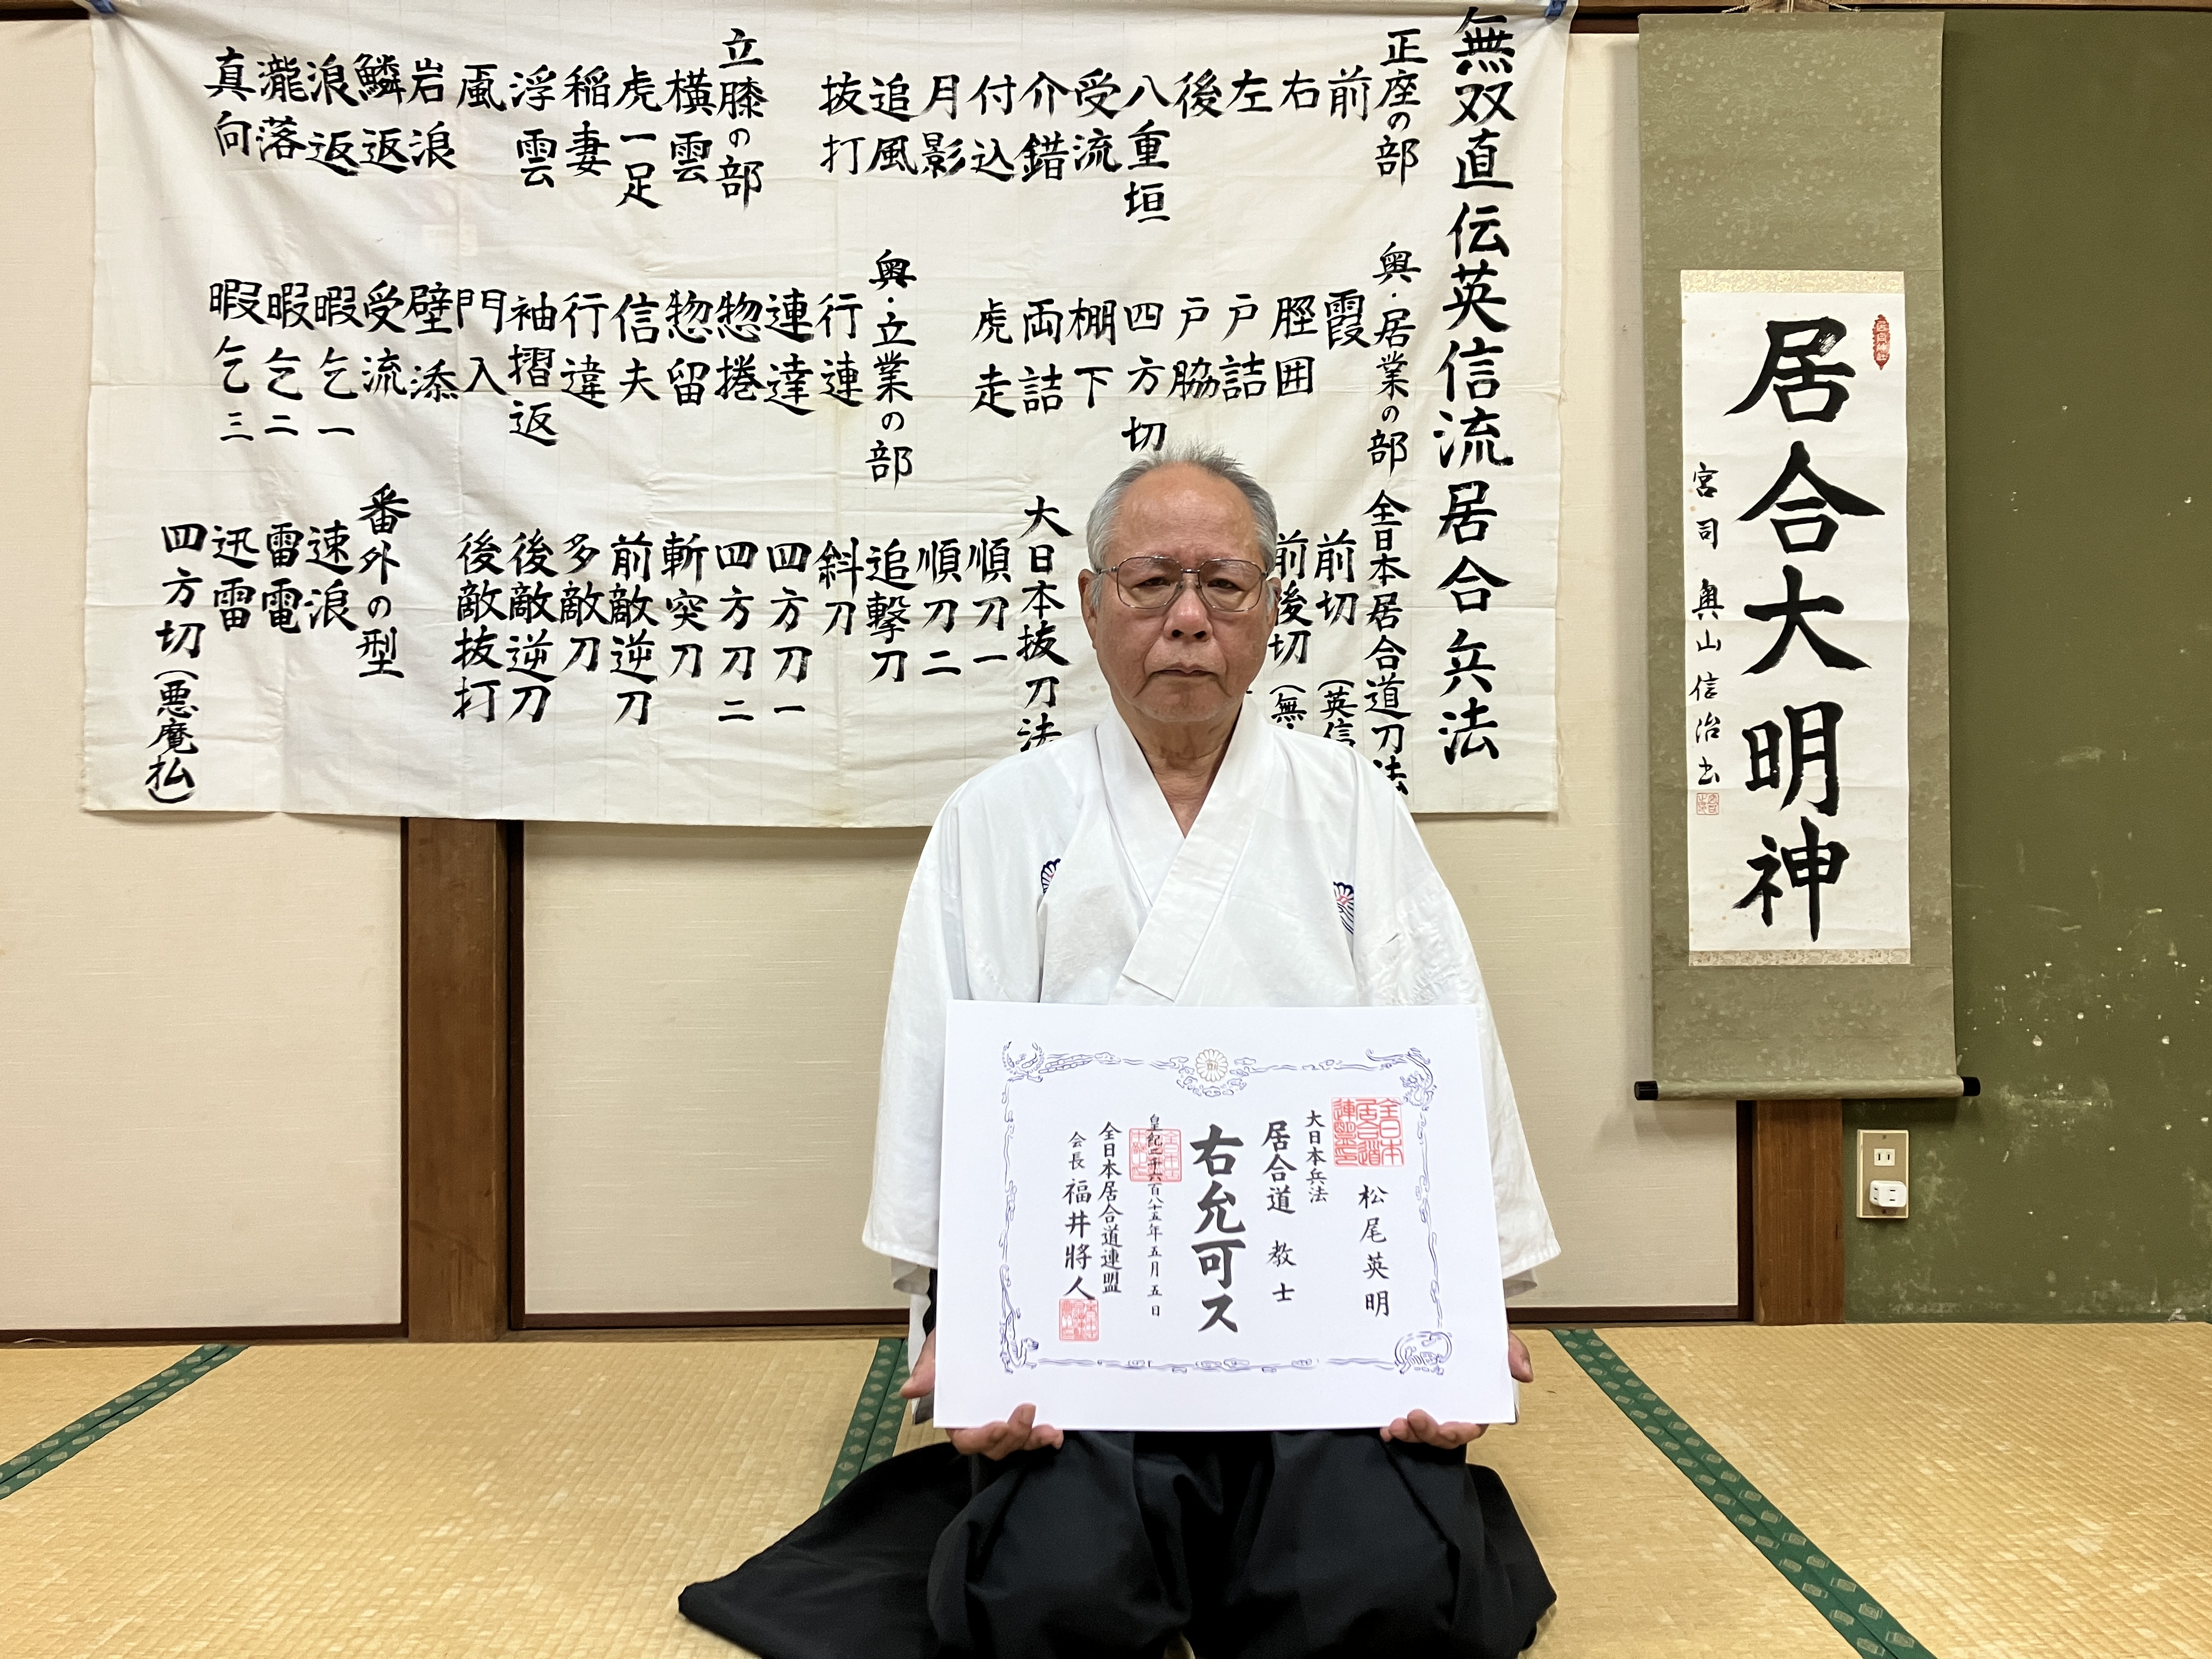 居合大明神
宮司 奥山信治書
無双直伝英信流居合兵法
正座の部
前
右
左
後
八重垣
受流
介錯
付込
月影
追風
抜打
立膝の部
横雲
虎一足
稲妻
浮雲
颪
岩浪
鱗返
浪返
瀧落
真向
奥・居業の部
霞
脛囲
戸詰
戸脇
四方切
棚下
両詰
虎走
奥・立業の部
行連
連達
惣捲
惣留
信夫
行違
袖摺返
門入
壁添
受流
暇乞一
暇乞二
暇乞三
全日本居合道刀法
前切(英信
前後切(無
大日本抜刀法
順刀一
順刀二
追撃刀
斜刀
四方刀一
四方刀二
斬突刀
前敵逆刀
多敵刀
後敵逆刀
後敵抜打
番外の型
速浪
雷電
迅雷
四方切(悪魔払)
全日本
居合道
連盟印
松尾英明
大日本兵法
居合道 教士
右允可ス
皇紀二千六百八十五年五月五日
全日本居合道連盟
会長 福井將人